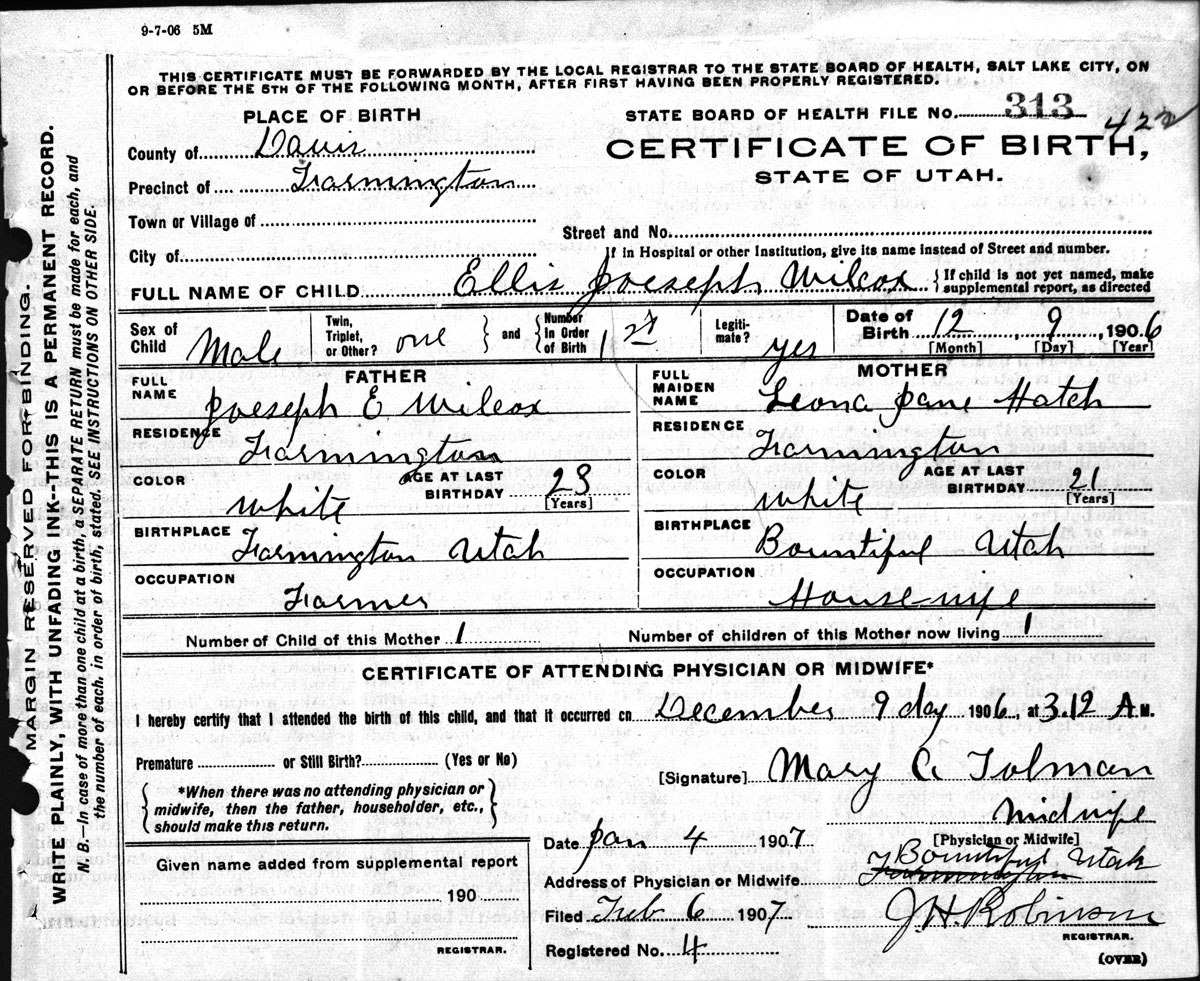 9-7-06 5M
THIS CERTIFICATE MUST BE FORWARDED BY THE LOCAL REGISTRAR TO THE STATE BOARD OF HEALTH, SALT LAKE CITY, ON
OR BEFORE THE 5TH OF THE FOLLOWING MONTH, AFTER FIRST HAVING BEEN PROPERLY REGISTERED.
MARGIN RESERVED FOR BINDING.
WRITE PLAINLY, WITH UNFADING INK--THIS IS A PERMANENT RECORD.
N. B.—In case of more than one child at a birth, a SEPARATE RETURN must be made for each, and
the number of each, in order of birth, stated. SEE INSTRUCTIONS ON OTHER SIDE.
PLACE OF BIRTH
County of Davis
Precinct of Farmington
Town or Village of
City of
STATE BOARD OF HEALTH FILE No. 313 422
CERTIFICATE OF BIRTH,
STATE OF UTAH.
Street and No.
If in Hospital or other Institution, give its name instead of Street and number.
FULL NAME OF CHILD Ellis Joeseph Wilcox { If child is not yet named, make
supplemental report, as directed
Sex of Child Male
Twin, Triplet, or Other? one } and { Number in Order of Birth 1st
Legitimate? yes
Date of Birth 12 9, 1906
[Month] [Day] [Year]
FATHER
FULL NAME Joeseph E Wilcox
RESIDENCE Farmington
COLOR white AGE AT LAST BIRTHDAY 23 [Years]
BIRTHPLACE Farmington Utah
OCCUPATION Farmer
MOTHER
FULL MAIDEN NAME Leona Jane Hatch
RESIDENCE Farmington
COLOR white AGE AT LAST BIRTHDAY 21 [Years]
BIRTHPLACE Bountiful Utah
OCCUPATION House-wife
Number of Child of this Mother 1 Number of children of this Mother now living 1
CERTIFICATE OF ATTENDING PHYSICIAN OR MIDWIFE*
I hereby certify that I attended the birth of this child, and that it occurred on December 9 day 1906, at 3.12 A.M.
Premature or Still Birth? (Yes or No)
{ *When there was no attending physician or
midwife, then the father, householder, etc.,
should make this return. }
Given name added from supplemental report
190
REGISTRAR.
[Signature] Mary C Tolman
midwife
[Physician or Midwife]
Date Jan 4 1907
Bountiful Utah
Address of Physician or Midwife Farmington
Filed Feb 6 1907 J. H. Robinson
REGISTRAR.
Registered No. 4
(OVER)